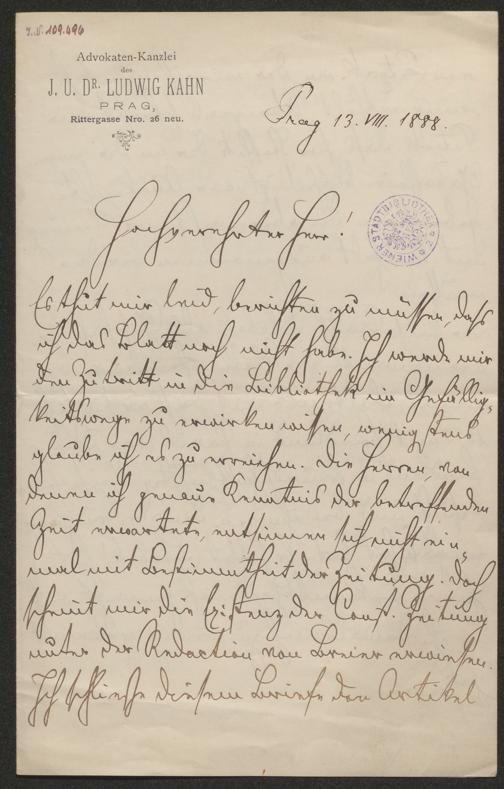 J.N. 109.696
Advokaten-Kanzlei
des
J. U. DR. LUDWIG KAHN
PRAG,
Rittergasse Nro. 26 neu.
Prag 13. VIII. 1888.
WIENER STADTBIBLIOTHEK
Hochverehrter Herr!
Es thut mir leid, berichten zu müssen, daß
ich das Blatt noch nicht habe. Ich werde mir
den Zutritt in die Bibliothek im Gefällig-
keitswege zu erwirken wissen, wenigstens
glaube ich es zu erreichen. Die Herren, von
denen ich genaue Kenntnis der betreffenden
Zeit erwartete, entsinnen sich nicht ein-
mal mit Bestimmtheit der Zeitung. Doch
scheint mir die Existenz der Const. Zeitung
unter der Redaction von Breier erwiesen.
Ich schließe diesem Briefe den Artikel